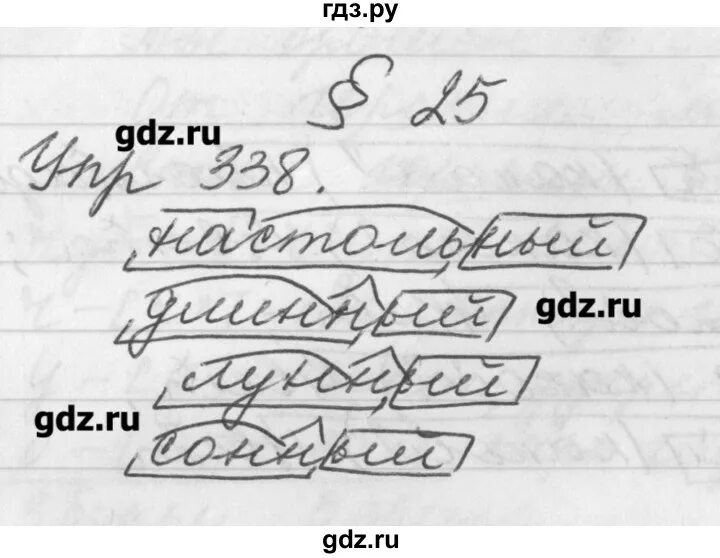 гдз.ру
§ 25
gdz.ru
Упр 338.
настольный
длинный
gdz.ru
лунный
gdz.ru
сонный
gdz.ru